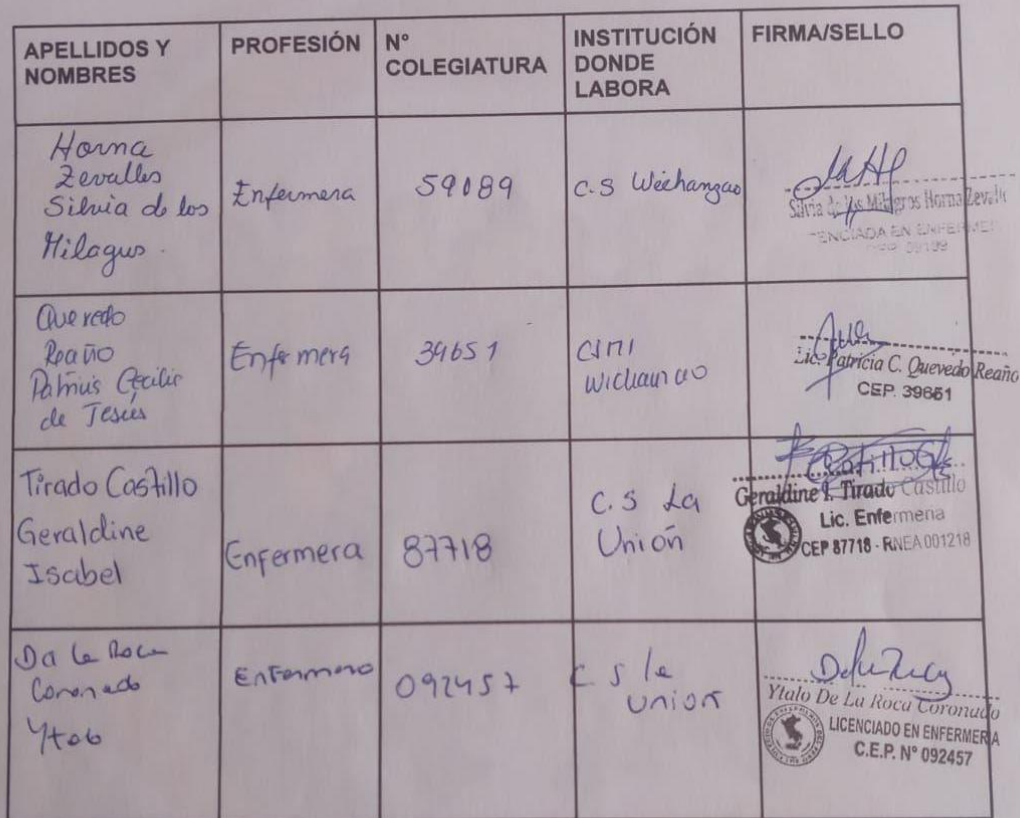 APELLIDOS Y
NOMBRES
PROFESIÓN
N°
COLEGIATURA
INSTITUCIÓN
DONDE
LABORA
FIRMA/SELLO
Horna
Zevalles
Silvia de los
Milagros
Enfermera
59089
C.S Wichanzao
Silvia de los Milagros Horna Zevall
ENCIADA EN ENFERME
Quevedo
Reaño
Cecilia
de Jesús
Enfermera
39651
CSMI
Wichanzao
Lic. Patricia C. Quevedo Reaño
CEP. 39651
Tirado Castillo
Geraldine
Isabel
Enfermera
87718
C.S La
Unión
Geraldine I. Tirado Castillo
Lic. Enfermeria
CEP 87718 - RNEA 001218
De la Roca
Coronado
Ytalo
Enfermero
092457
C S la
Union
Ytalo De La Roca Coronado
LICENCIADO EN ENFERMERIA
C.E.P. N° 092457